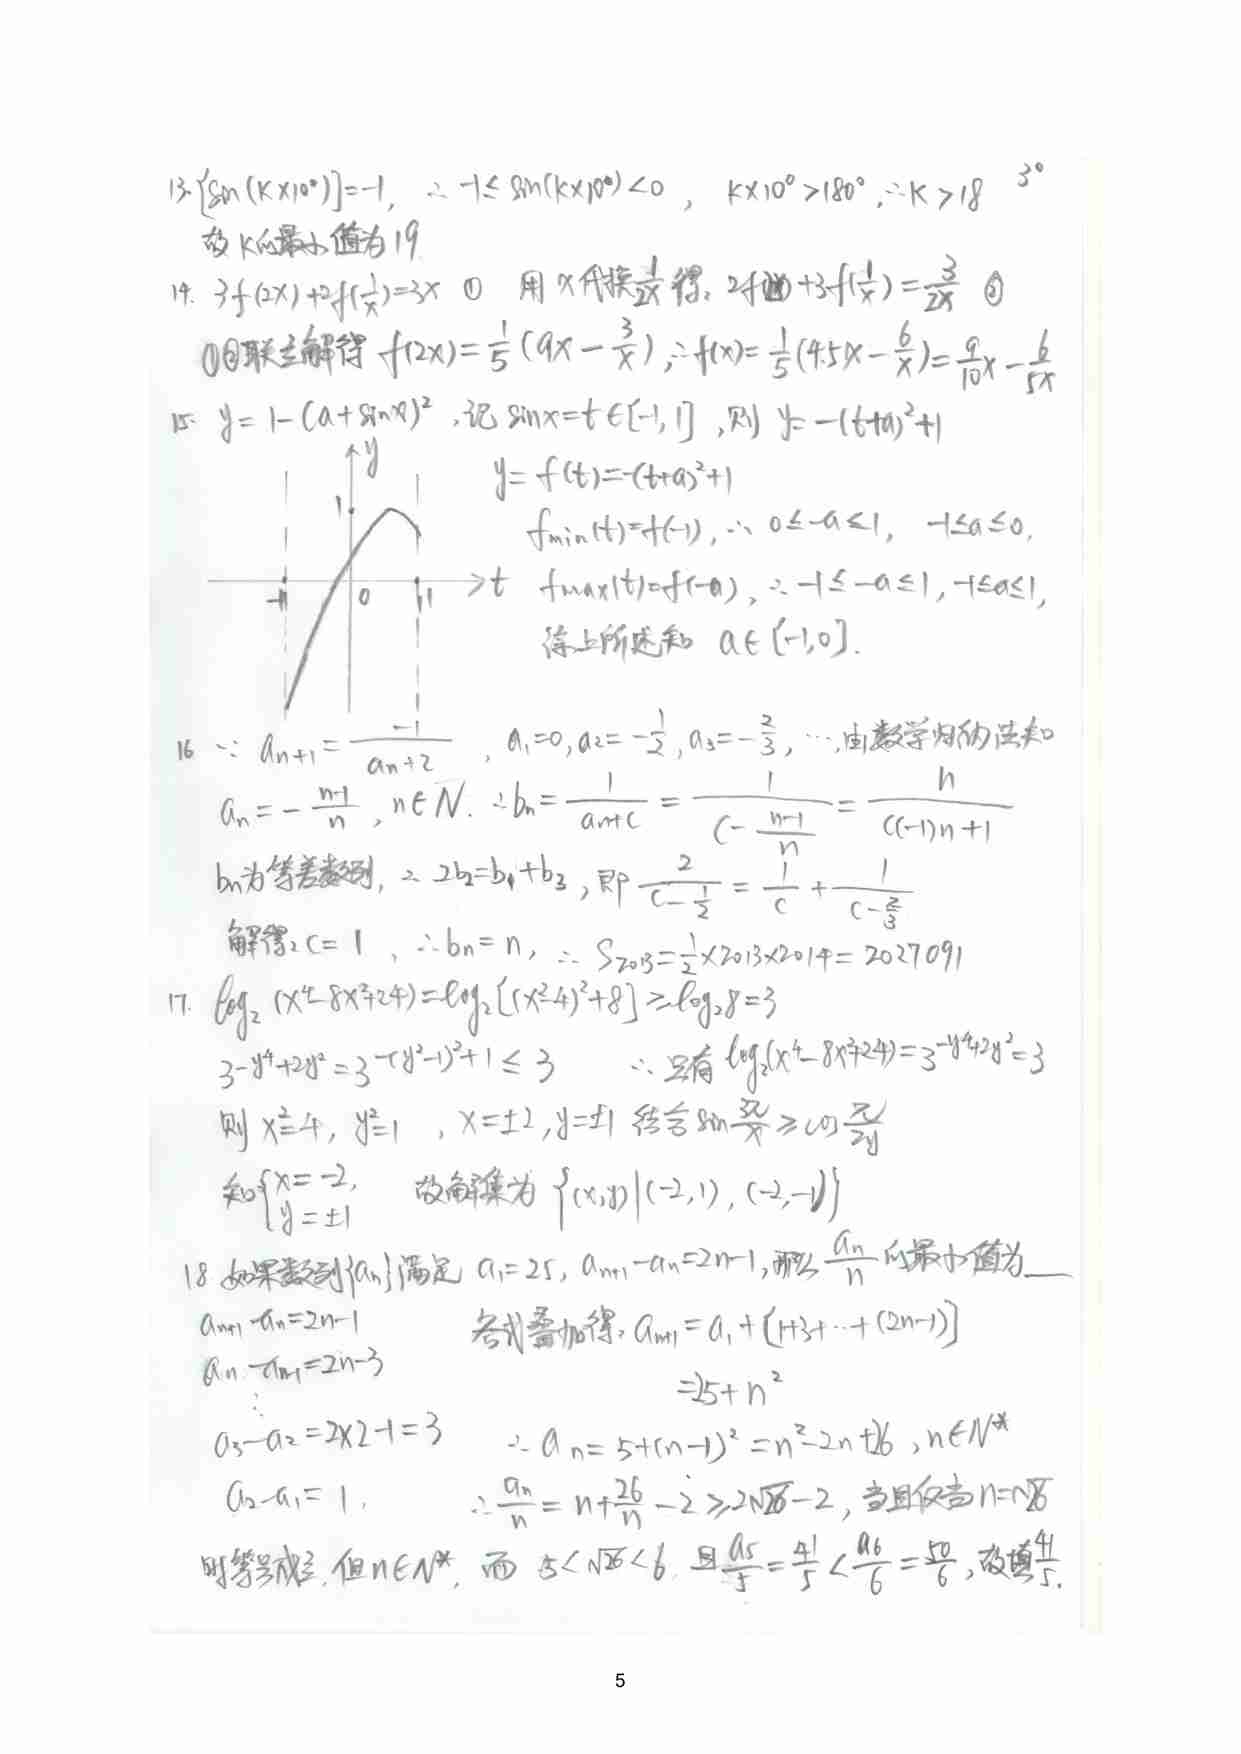 13. [sin(K×10°)]=-1, ∴ -1≤sin(K×10°)<0, K×10°>180°, ∴K>18 3°
故K的最小值为19
14. 3f(2x)+2f(1/x)=3x ① 用x代换1/2x得: 2f(2x)+3f(1/x)=3/2x ②
①②联立解得 f(2x)=1/5(9x-3/x), ∴f(x)=1/5(4.5x-6/x)=9/10x-6/5x
15. y=1-(a+sinx)², 记sinx=t∈[-1,1], 则 y=-(t+a)²+1
y
y=f(t)=-(t+a)²+1
1
fmin(t)=f(-1), ∴ 0≤-a≤1, -1≤a≤0.
-1 0 1 t
fmax(t)=f(-a), ∴ -1≤-a≤1, -1≤a≤1,
综上所述知 a∈[-1,0].
16 ∵ an+1=-1/an+2, a1=0, a2=-1/2, a3=-2/3, ⋯, 由数学归纳法知
an=-n-1/n, n∈N. ∴bn=1/an+c=1/c-n-1/n=n/(c-1)n+1
bn为等差数列, ∴ 2b2=b1+b3, 即 2/c-1/2=1/c+1/c-2/3
解得: c=1, ∴bn=n, ∴ S2013=1/2×2013×2014=2027091
17. log2(x⁴-8x²+24)=log2[(x²-4)²+8]≥log28=3
3-y⁴+2y²=3-(y²-1)²+1≤3 ∴只有 log2(x⁴-8x²+24)=3-y⁴+2y²=3
则 x²=4, y²=1, x=±2, y=±1 结合sin3π/x≥cosπ/2y
知{x=-2, y=±1 故解集为 {(x,y)|(-2,1),(-2,-1)}
18 如果数列{an}满足 a1=25, an+1-an=2n-1, 那么an/n的最小值为___
an+1-an=2n-1 各式叠加得: an+1=a1+[1+3+⋯+(2n-1)]
an-an-1=2n-3
=25+n²
⋮
a3-a2=2×2-1=3 ∴ an=5+(n-1)²=n²-2n+26, n∈N*
a2-a1=1. ∴an/n=n+26/n-2≥2√26-2, 当且仅当n=√26
时等号成立, 但n∈N*, 而 5<√26<6 且a5/5=41/5<a6/6=50/6, 故填41/5.
5